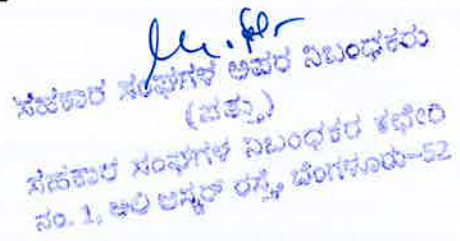 ಸಹಕಾರ ಸಂಘಗಳ ಅಪರ ನಿಬಂಧಕರು
(ಪತ್ತು)
ಸಹಕಾರ ಸಂಘಗಳ ನಿಬಂಧಕರ ಕಛೇರಿ
ನಂ. 1, ಅಲಿ ಅಸ್ಕರ್ ರಸ್ತೆ, ಬೆಂಗಳೂರು-52